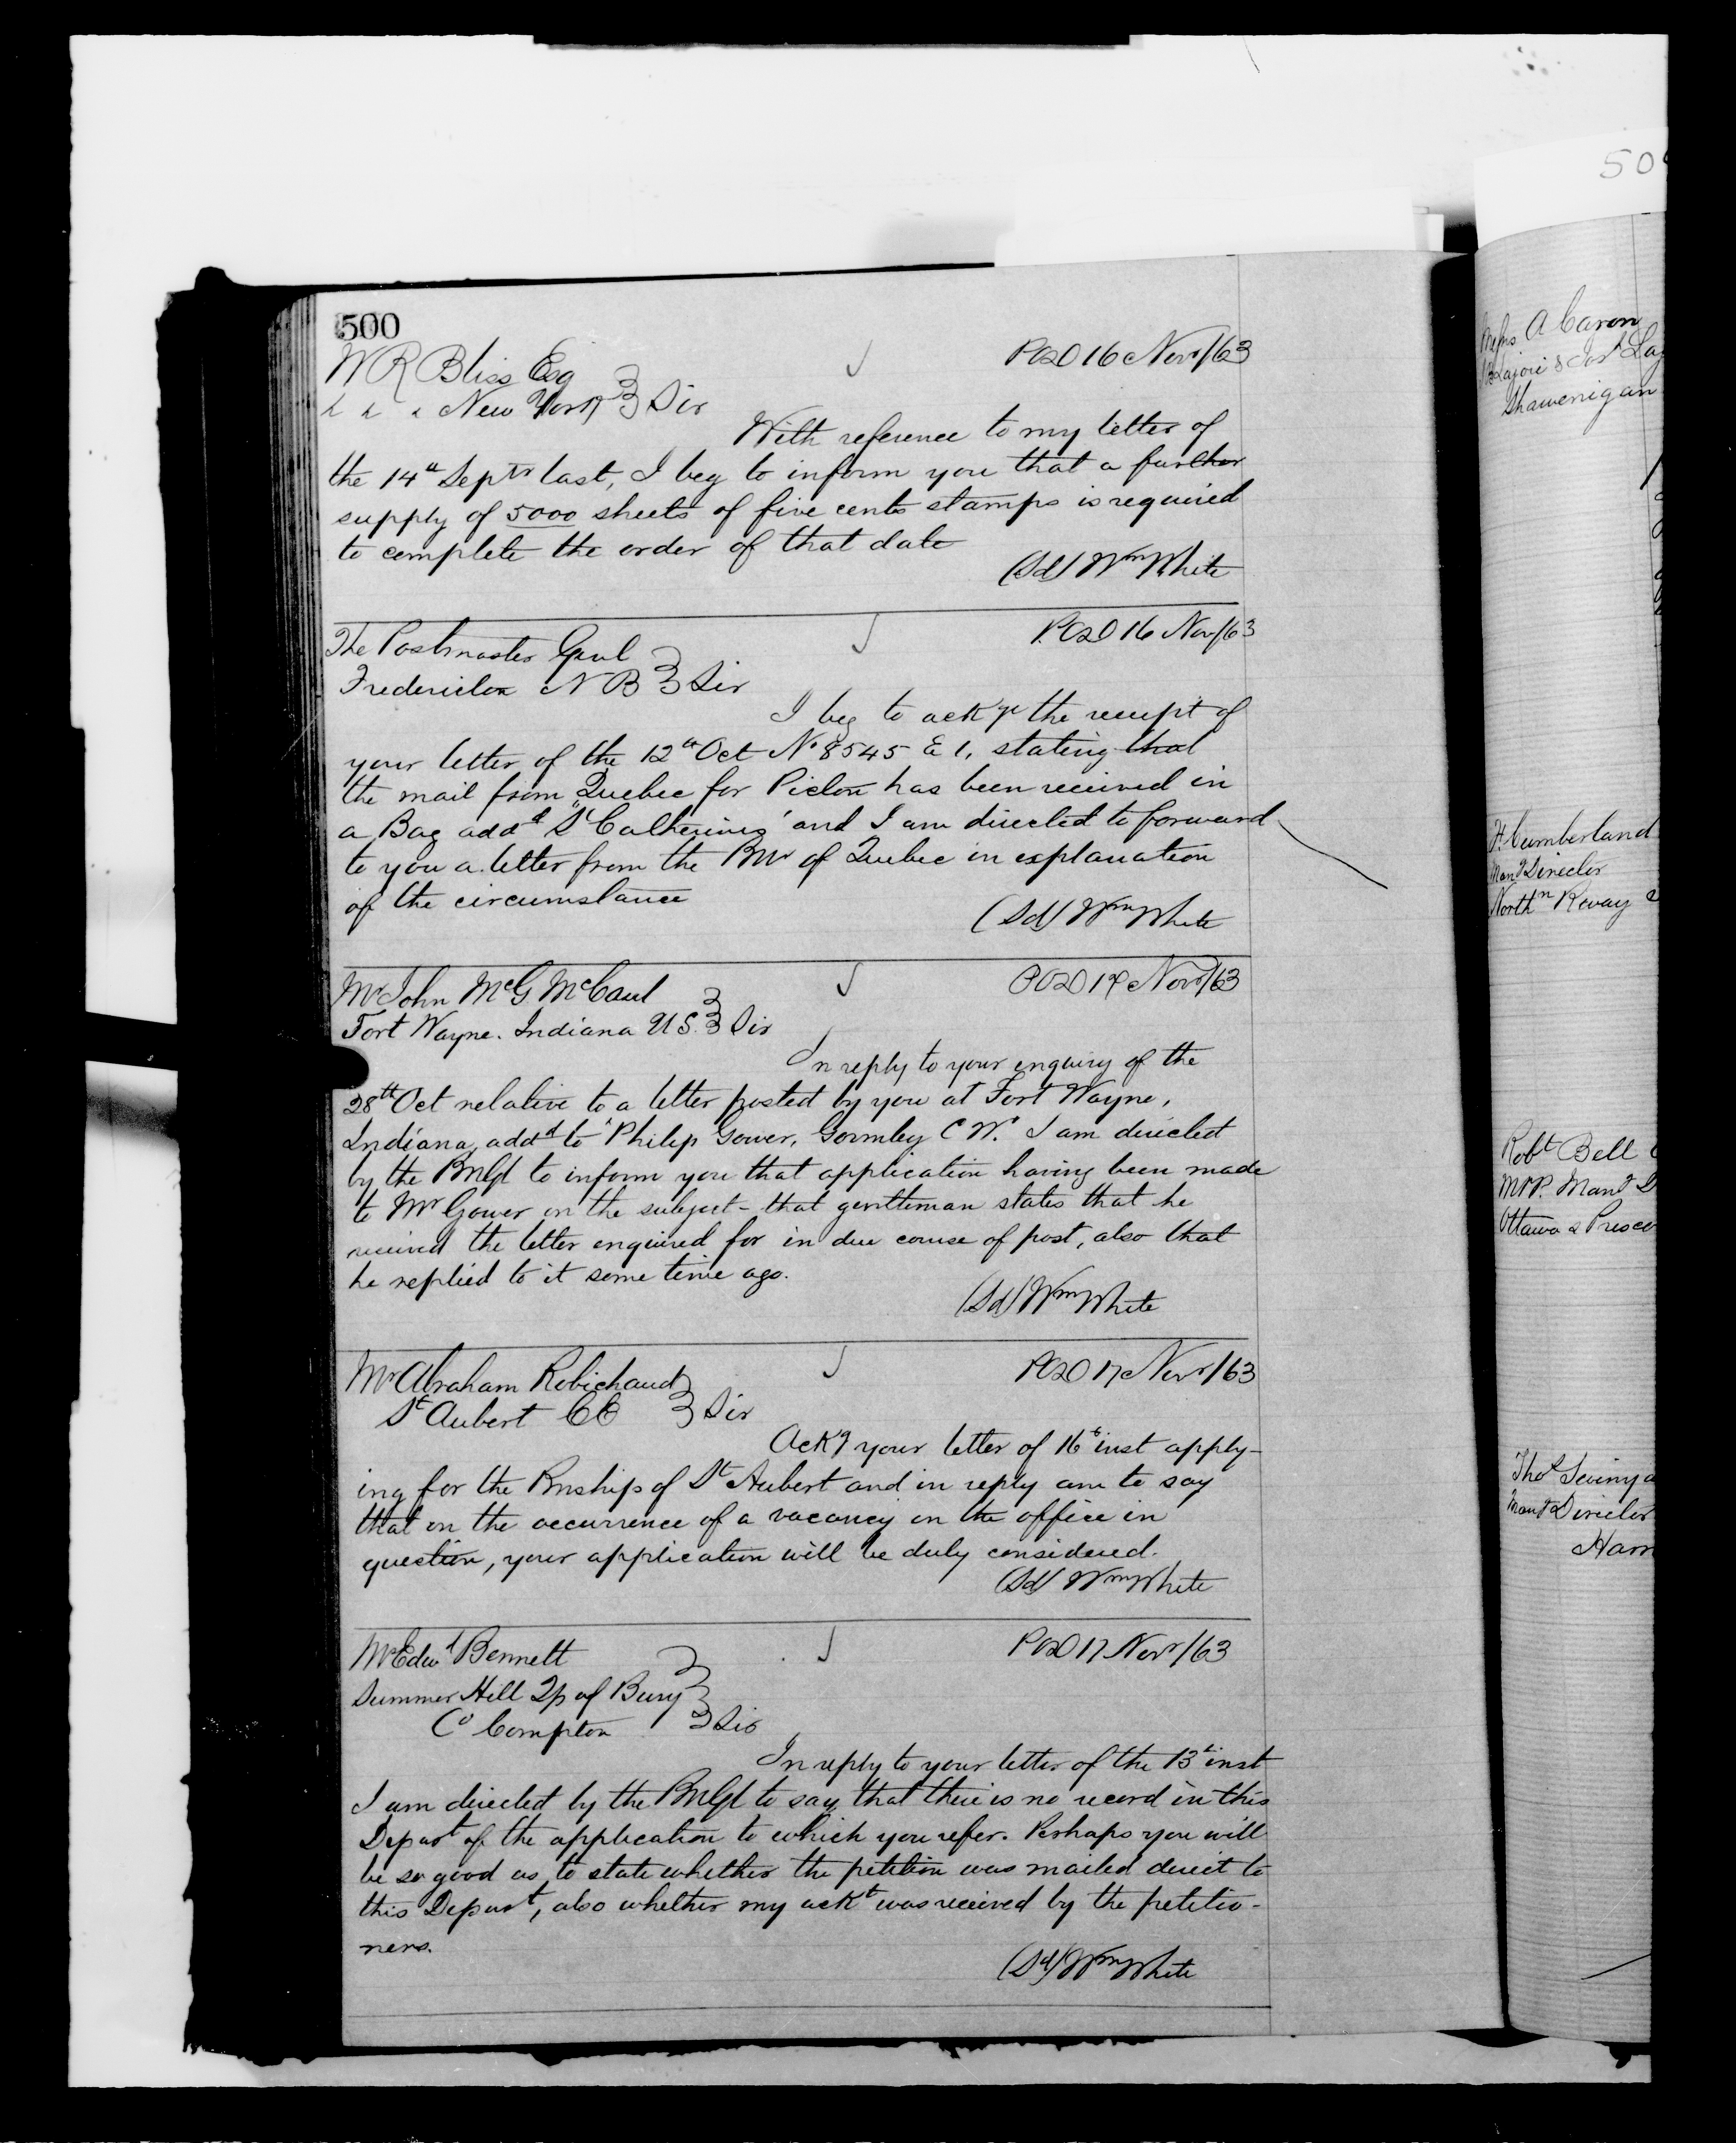 500
W R Bliss Esq
New York Sir
POD 16 Novr/63
With reference to my letter of
the 14th Septr last, I beg to inform you that a further
supply of 5000 sheets of five cents stamps is required
to complete the order of that date
(Sd) Wm White
The Postmaster Genl
Fredericton N B Sir
POD 16 Nov/63
I beg to ackge the receipt of
your letter of the 12th Oct No 8545 E 1, stating that
the mail from Quebec for Pictou has been received in
a Bag addd "St Catherines" and I am directed to forward
to you a letter from the PMr of Quebec in explanation
of the circumstance
(Sd) Wm White
Mr John McG McCaul
Fort Wayne. Indiana U S. Sir
POD 17 Novr/63
In reply to your enquiry of the
28th Oct relative to a letter posted by you at Fort Wayne,
Indiana, addd to "Philip Gower, Gormley C W." I am directed
by the PMGl to inform you that application having been made
to Mr Gower on the subject - that gentleman states that he
received the letter enquired for in due course of post, also that
he replied to it some time ago.
(Sd) Wm White
Mr Abraham Robichaud
St Aubert CE Sir
POD 17 Novr/63
Ackg your letter of 16th inst apply-
ing for the PMship of St Aubert and in reply am to say
that on the occurrence of a vacancy in the office in
question, your application will be duly considered.
(Sd) Wm White
Mr Edwd Bennett
Summer Hill Tp of Bury
Co Compton Sir
POD 17 Novr/63
In reply to your letter of the 13th inst
I am directed by the PMGl to say that there is no record in this
Depart of the application to which you refer. Perhaps you will
be so good as to state whether the petition was mailed direct to
this Depart, also whether my ackt was received by the petitio-
ners.
(Sd) Wm White
50
Messrs A Caron
Lajoie &
Shawenigan
F. Cumberland
Mang Director
Northn Rway
Robt Bell
MPP. Mang D
Ottawa & Presco
Thos
Mang Director
Ham